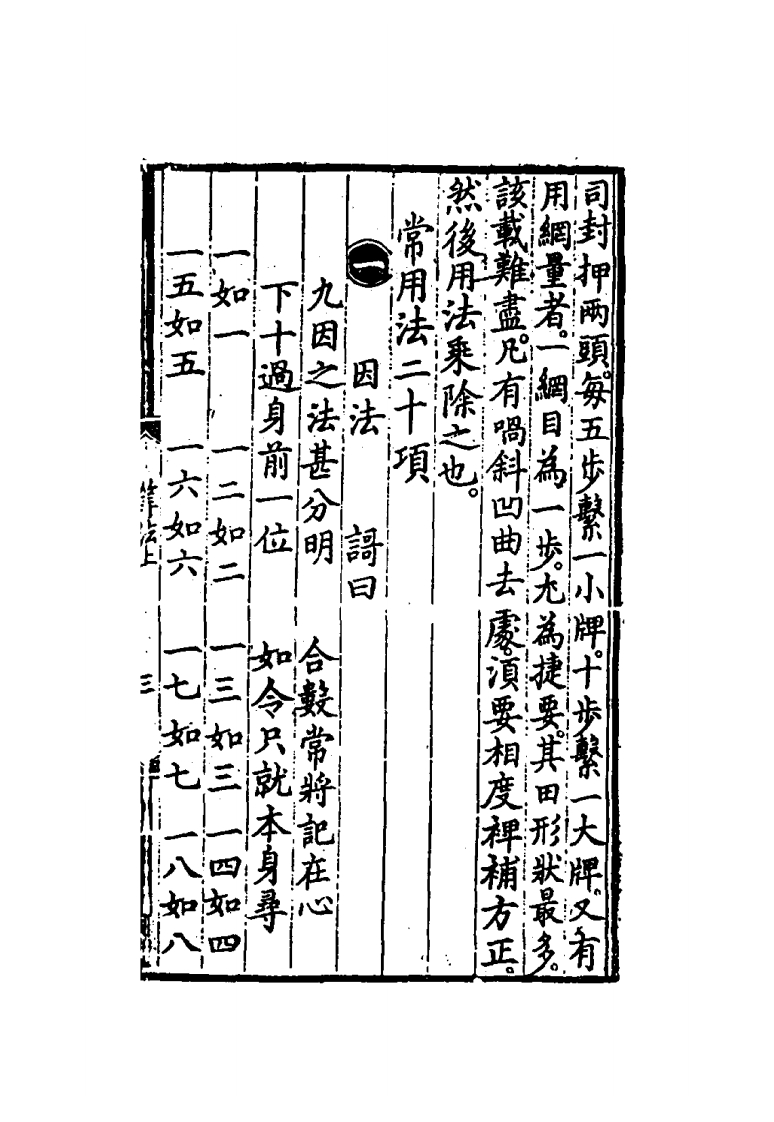 司封押兩頭。每五步繫一小牌。十步繫一大牌。又有
用網量者。一網目為一步。尤為捷要。其田形狀最多。
該載難盡。凡有喎斜凹曲去處。湏要相度裨補方正。
然後用法乘除之也。
常用法二十項
一 因法 謌曰
九因之法甚分明 合數常將記在心
下十過身前一位 如令只就本身尋
一如一 一二如二 一三如三 一四如四
一五如五 一六如六 一七如七 一八如八
算法上 三